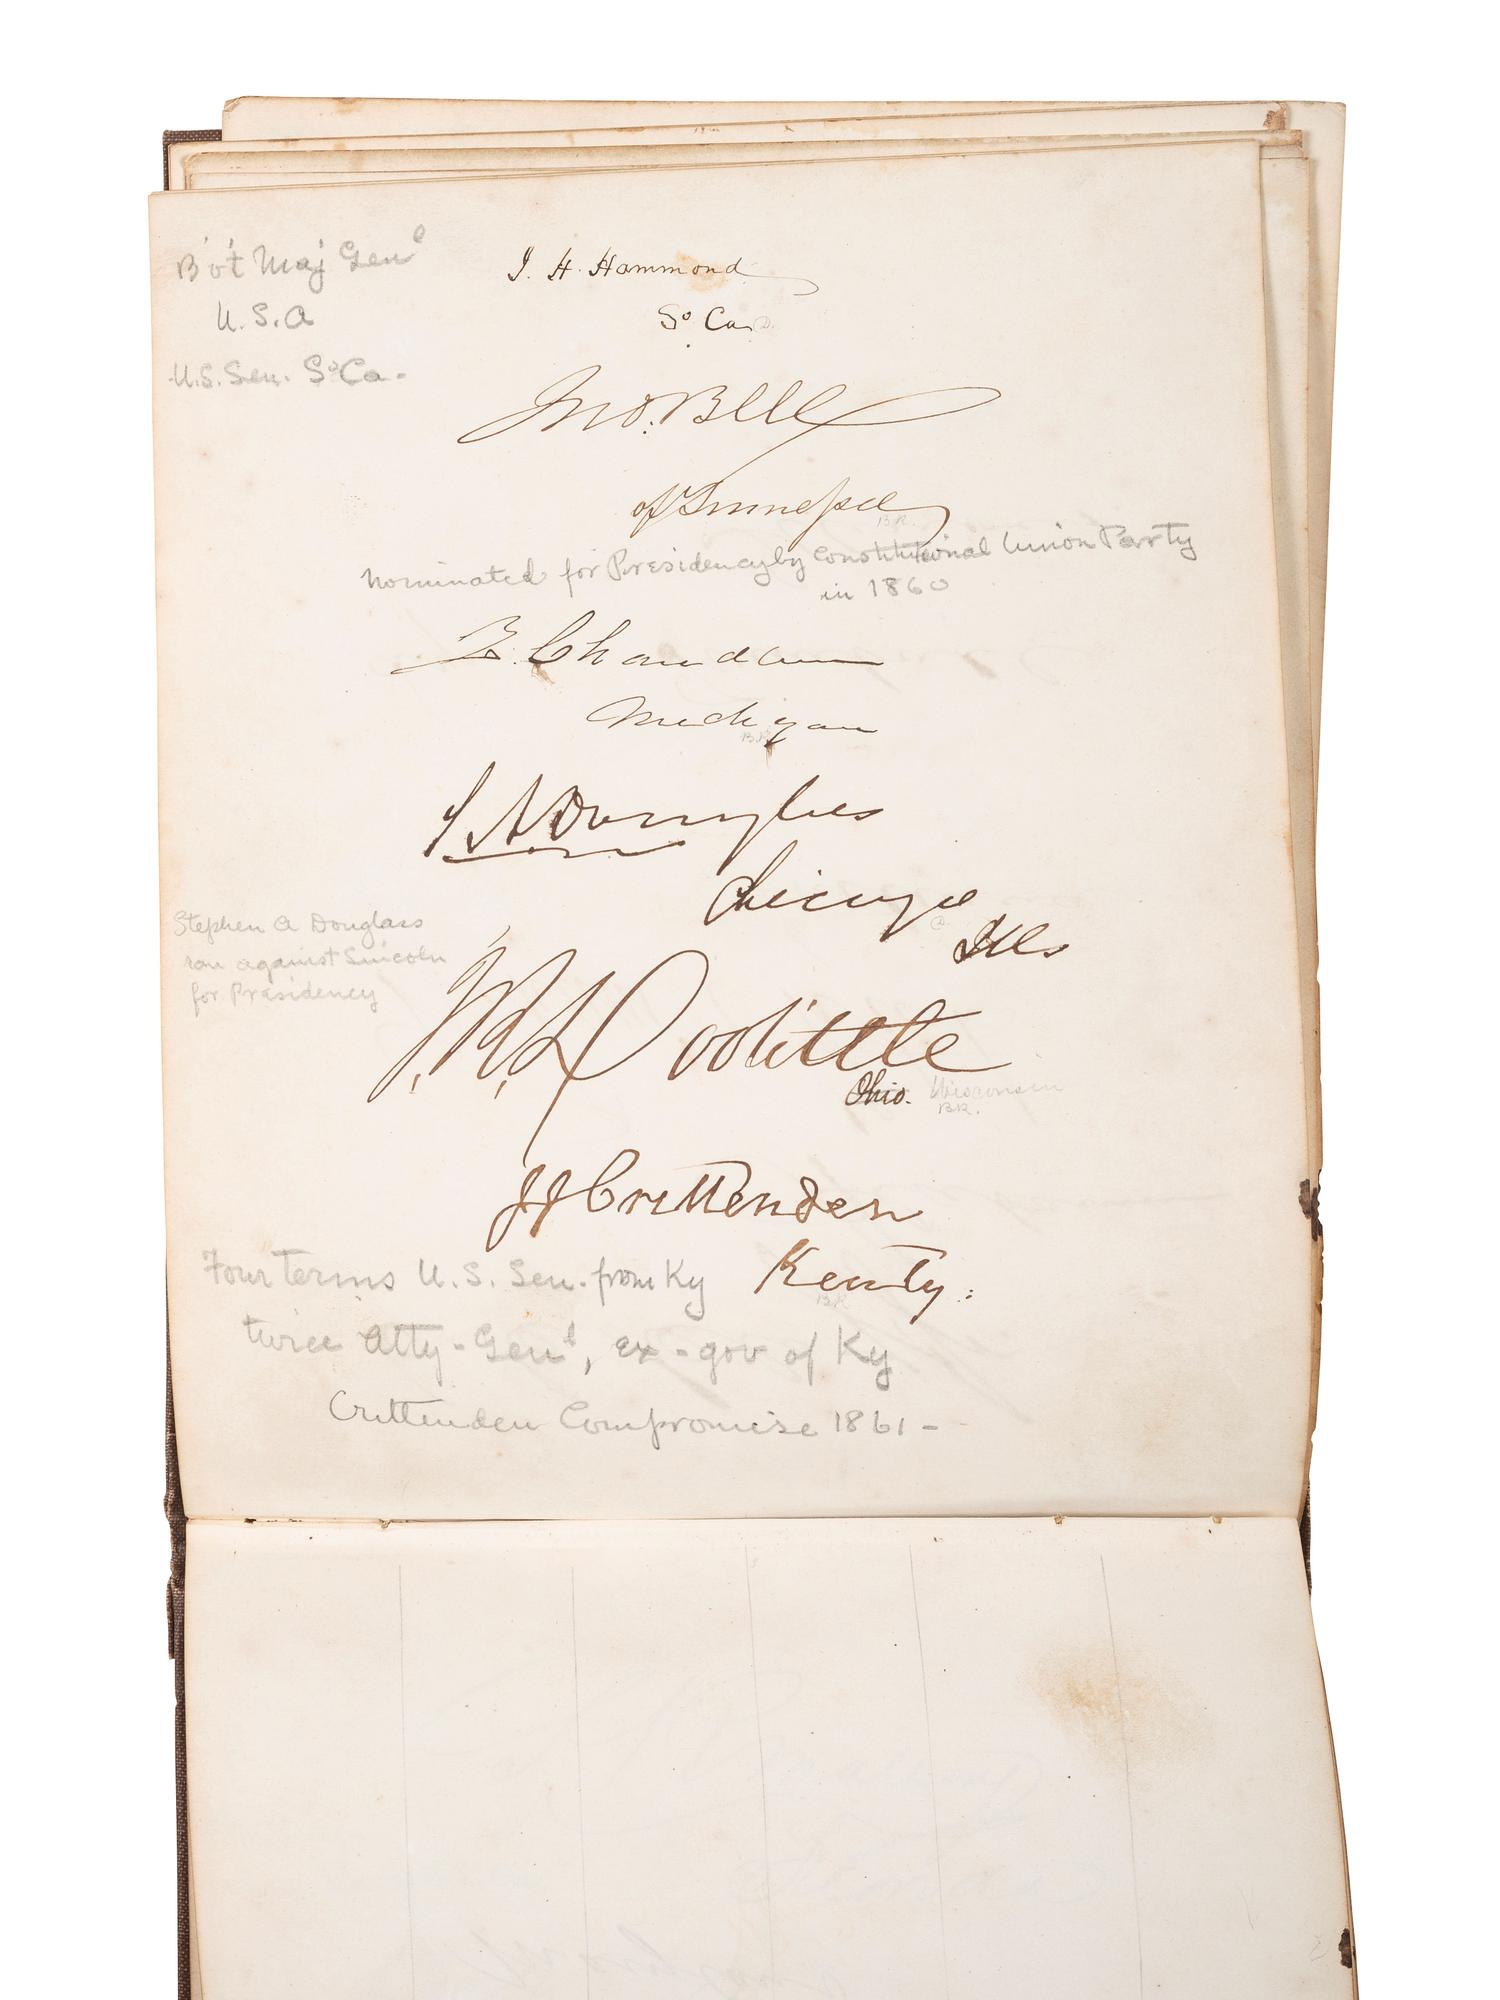 B'v't Maj Gen'l
U.S.A
U.S. Sen. So Ca-
J. H. Hammond
So Ca.
Jno. Bell
of Tennessee
B.R.
Nominated for Presidency by Constitutional Union Party
in 1860
Z. Chandler
Michigan
B.R.
S A Douglas
Chicago
Ills
Stephen A Douglass
ran against Lincoln
for Presidency
J. R. Doolittle
Ohio. Wisconsin
B.R.
J J Crittenden
Kenty:
B.R.
Four terms U.S. Sen. from Ky
twice Atty-Gen'l, ex-gov of Ky
Crittenden Compromise 1861-